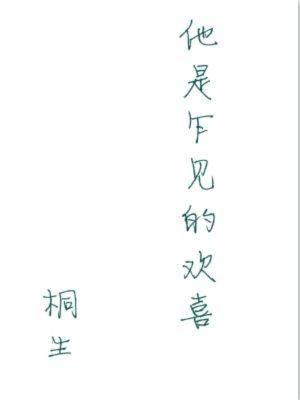 他是乍见的欢喜
桐生